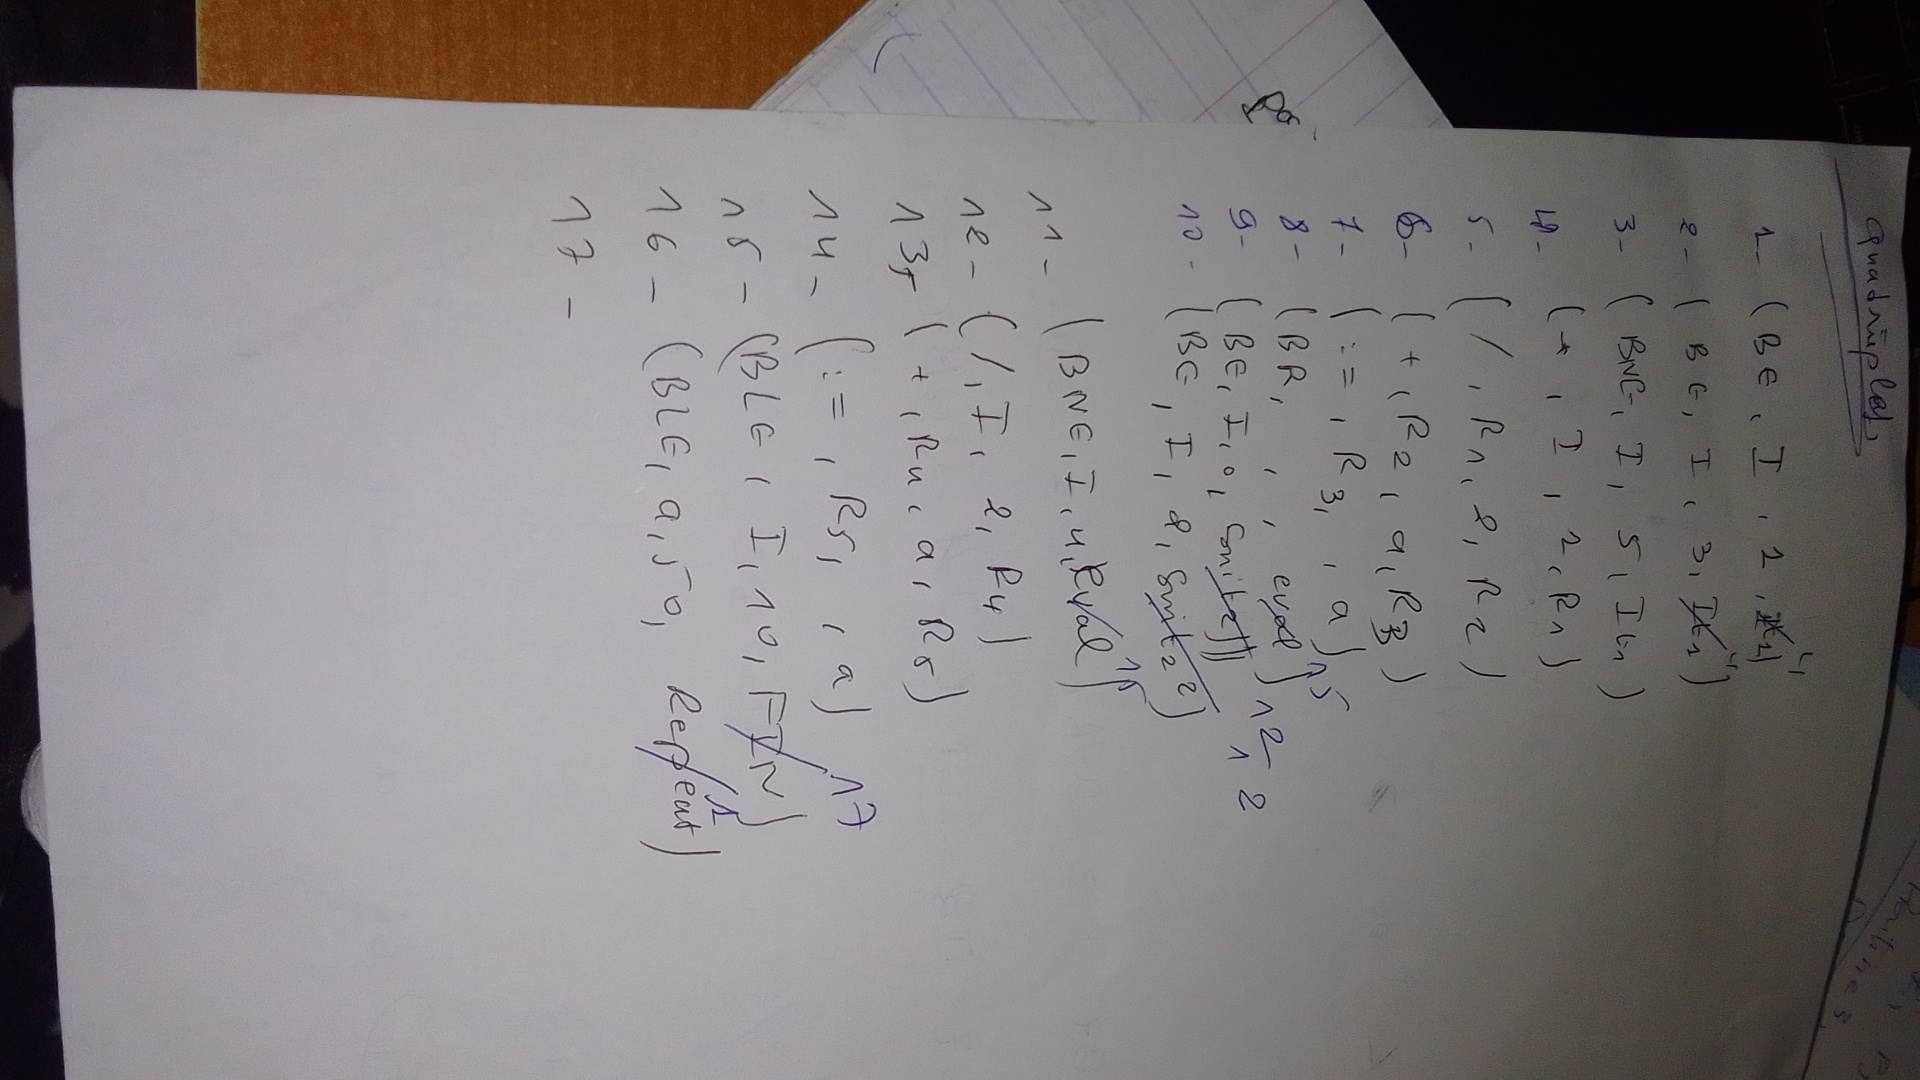 Quadruplets
Routine 3,
1- (BE, I, 1, 4)
2- ( BE, I, 3, It1) 4
3- ( BNE, I, 5, It1 )
4- (+, I, 1, R1)
5- (/, R1, 2, R2)
6- (+, R2, a, R3)
7- (:=, R3, , a)
8- (BR, , , eval) 15
9- (BE, I, 0, Suite2) 12
10- (BE, I, 2, Suit2 2) 12
11- (BNE, I, 4, Eval) 15
12- (/, I, 2, R4)
13- (+, R4, a, R5)
14- (:=, R5, , a)
15- (BLE, I, 10, FIN) 17
16- (BLE, a, 50, Repeat) 1
17-